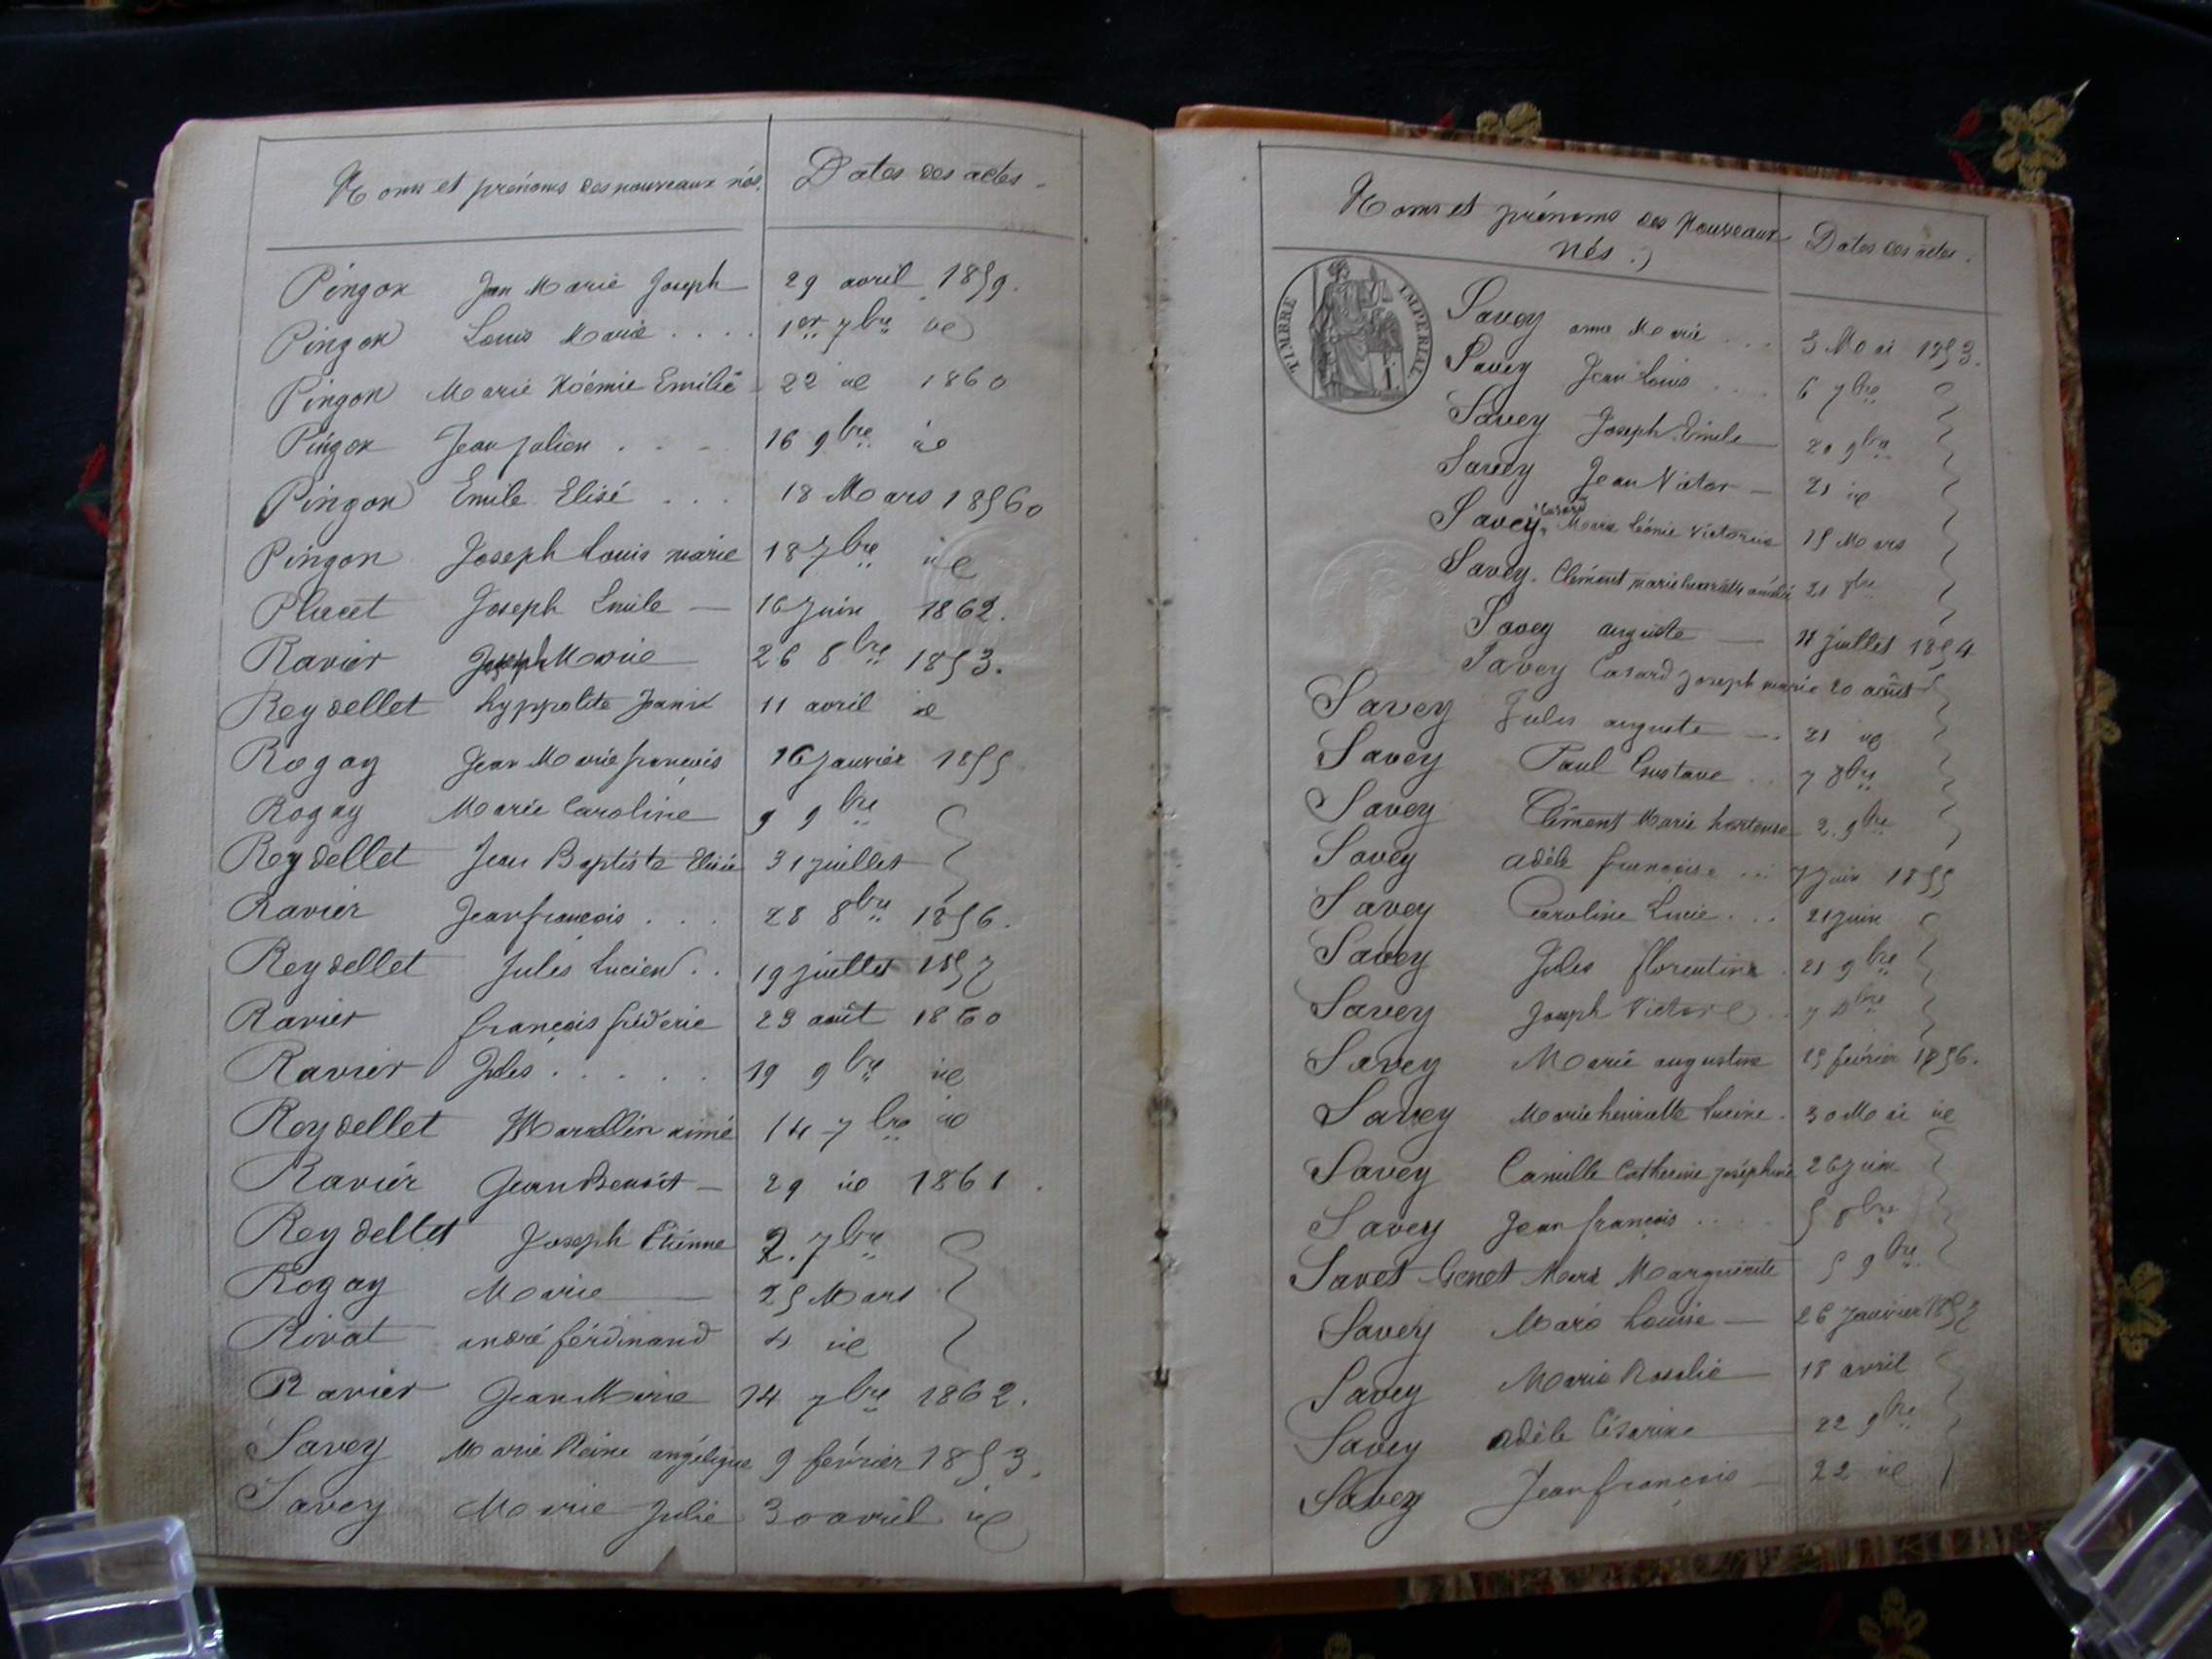 Noms et prénoms des nouveaux nés. Dates des actes.
Pingon Jean Marie Joseph 29 avril 1859.
Pingon Louis Marie .... 1er 7bre id
Pingon Marie Noémie Emilie 22 id 1860
Pingon Jean Julien . . . 16 9bre id
Pingon Emile Elisé ... 18 Mars 18560
Pingon Joseph Louis marie 18 7bre id
Placet Joseph Emile — 16 Juin 1862.
Ravier Joseph Marie 26 8bre 1853.
Reydellet hyppolite 11 avril id
Rogay Jean Marie françois 16 Janvier 1855
Rogay Marie Caroline 9 9bre
Reydellet Jean Baptiste Elisée 31 juillet
Ravier Jean françois . . . 28 8bre 1856.
Reydellet Jules Lucien . . 19 juillet 1857
Ravier françois fréderic 23 août 1860
Ravier Jules . . . . . 19 9bre id
Reydellet Marcellin aimé 14 7bre id
Ravier Jean Benoit — 29 id 1861.
Reydellet Joseph Etienne 2. 7bre
Rogay Marie — 25 Mars
Rivat andré férdinand 4 id
Ravier Jean Marie 14 7bre 1862.
Savey Marie Reine angélique 9 février 1853.
Savey Marie Julie 30 avril id
Noms et prénoms des Nouveaux Dates des actes.
nés.
TIMBRE IMPERIAL
Savey anne Marie . . . 3 Mai 1853.
Savey Jean Louis .... 6 7bre
Savey Joseph Emile 20 9bre
Savey Jean Victor — 21 id
Casard
Savey, Marie Léonie Victorine 15 Mars
Savey. Clément marie henriette 21 8bre
Savey auguste — 11 juillet 1854
Savey Casard joseph marie 20 août
Savey Jules auguste — 21 id
Savey Paul Gustave .. 7 8bre
Savey Clément Marie hortense 2. 9bre
Savey adèle françoise ... 7 Juin 1855
Savey Caroline Lucie . . . 21 Juin
Savey Jules florentin . 21 9bre
Savey Joseph Victor .. 7
Savey Marie augustine 15 février 1856.
Savey Marie henriette Lucine . 30 Mai id
Savey Camille Catherine Joséphine 26 Juin
Savey Jean françois .... 5 8bre
Savet Genet Marie Marguerite 5 9bre
Savey Marie Louise — 26 Janvier 1857
Savey Marie Rosalie — 18 avril
Savey adèle Césarine 22 9bre
Savey Jean françois — 22 id